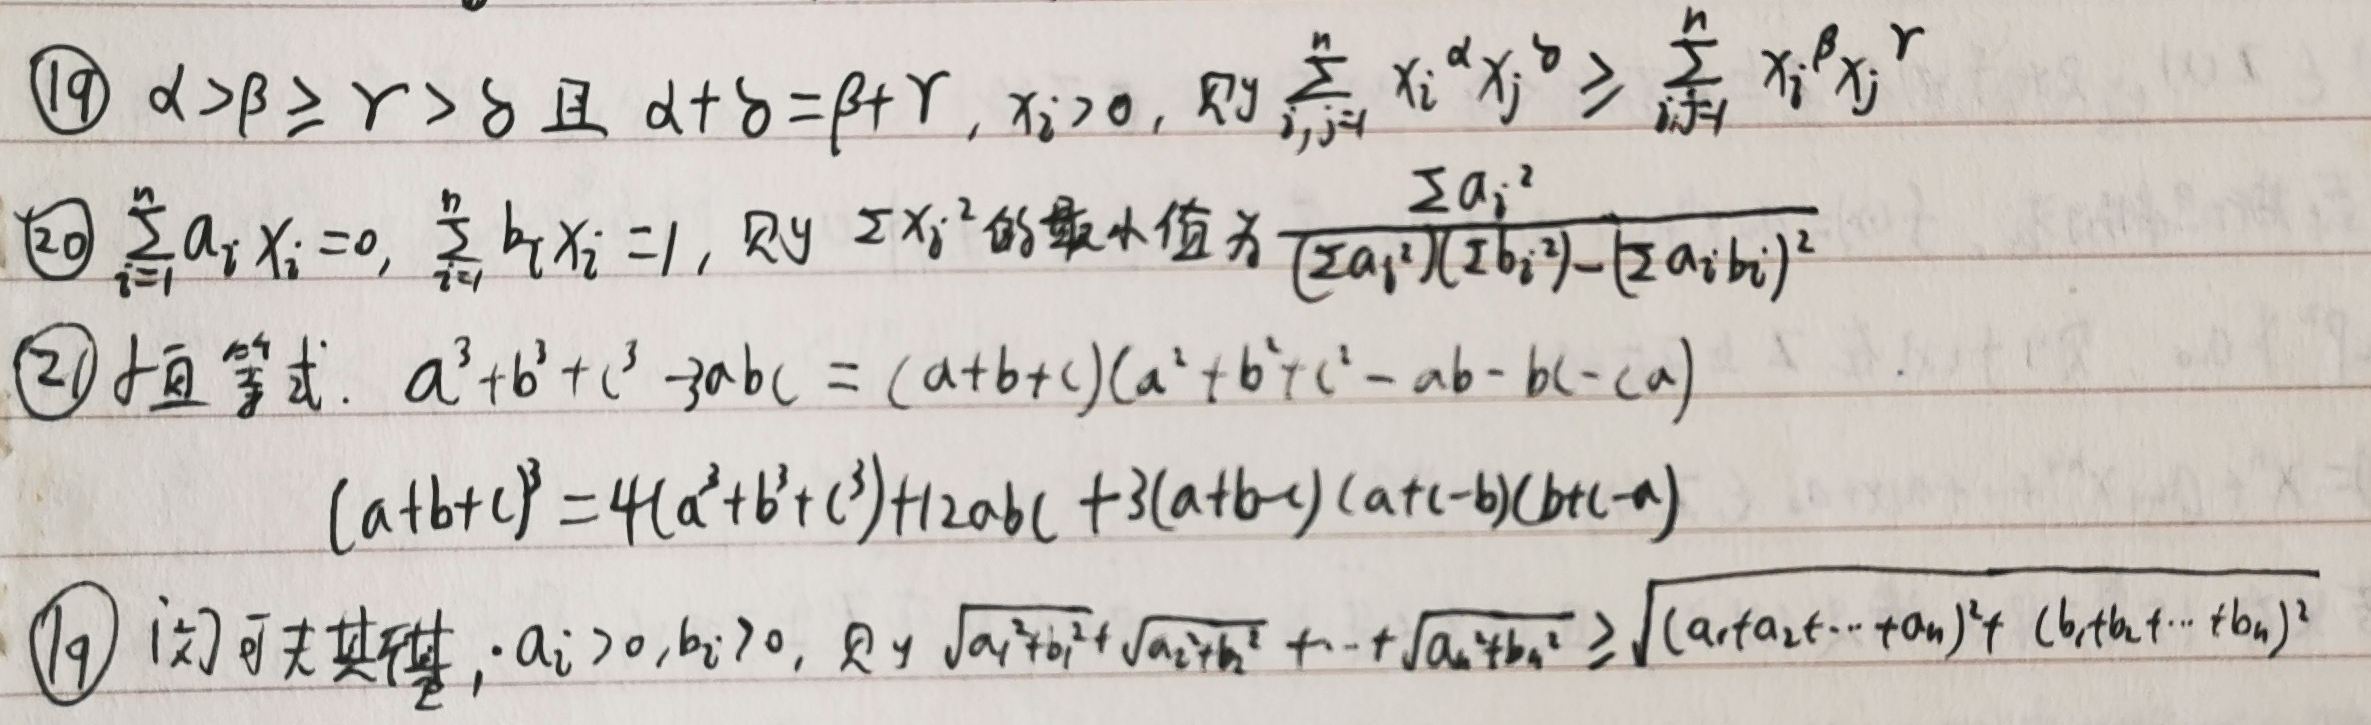 ⑲ α>β≥γ>δ 且 α+δ=β+γ, xᵢ>0, 则 ∑_{i,j=1}^{n} xᵢ^α xⱼ^δ ≥ ∑_{i,j=1}^{n} xᵢ^β xⱼ^γ
⑳ ∑_{i=1}^{n} aᵢxᵢ=0, ∑_{i=1}^{n} bᵢxᵢ=1, 则 ∑xᵢ²的最小值为 ∑aᵢ² / ((∑aᵢ²)(∑bᵢ²)-(∑aᵢbᵢ)²)
㉑ 恒等式. a³+b³+c³-3abc = (a+b+c)(a²+b²+c²-ab-bc-ca)
(a+b+c)³=4(a³+b³+c³)+12abc+3(a+b-c)(a+c-b)(b+c-a)
⑲ 闵可夫斯基, aᵢ>0, bᵢ>0, 则 √(a₁²+b₁²)+√(a₂²+b₂²)+…+√(aₙ²+bₙ²) ≥ √((a₁+a₂+…+aₙ)²+(b₁+b₂+…+bₙ)²)